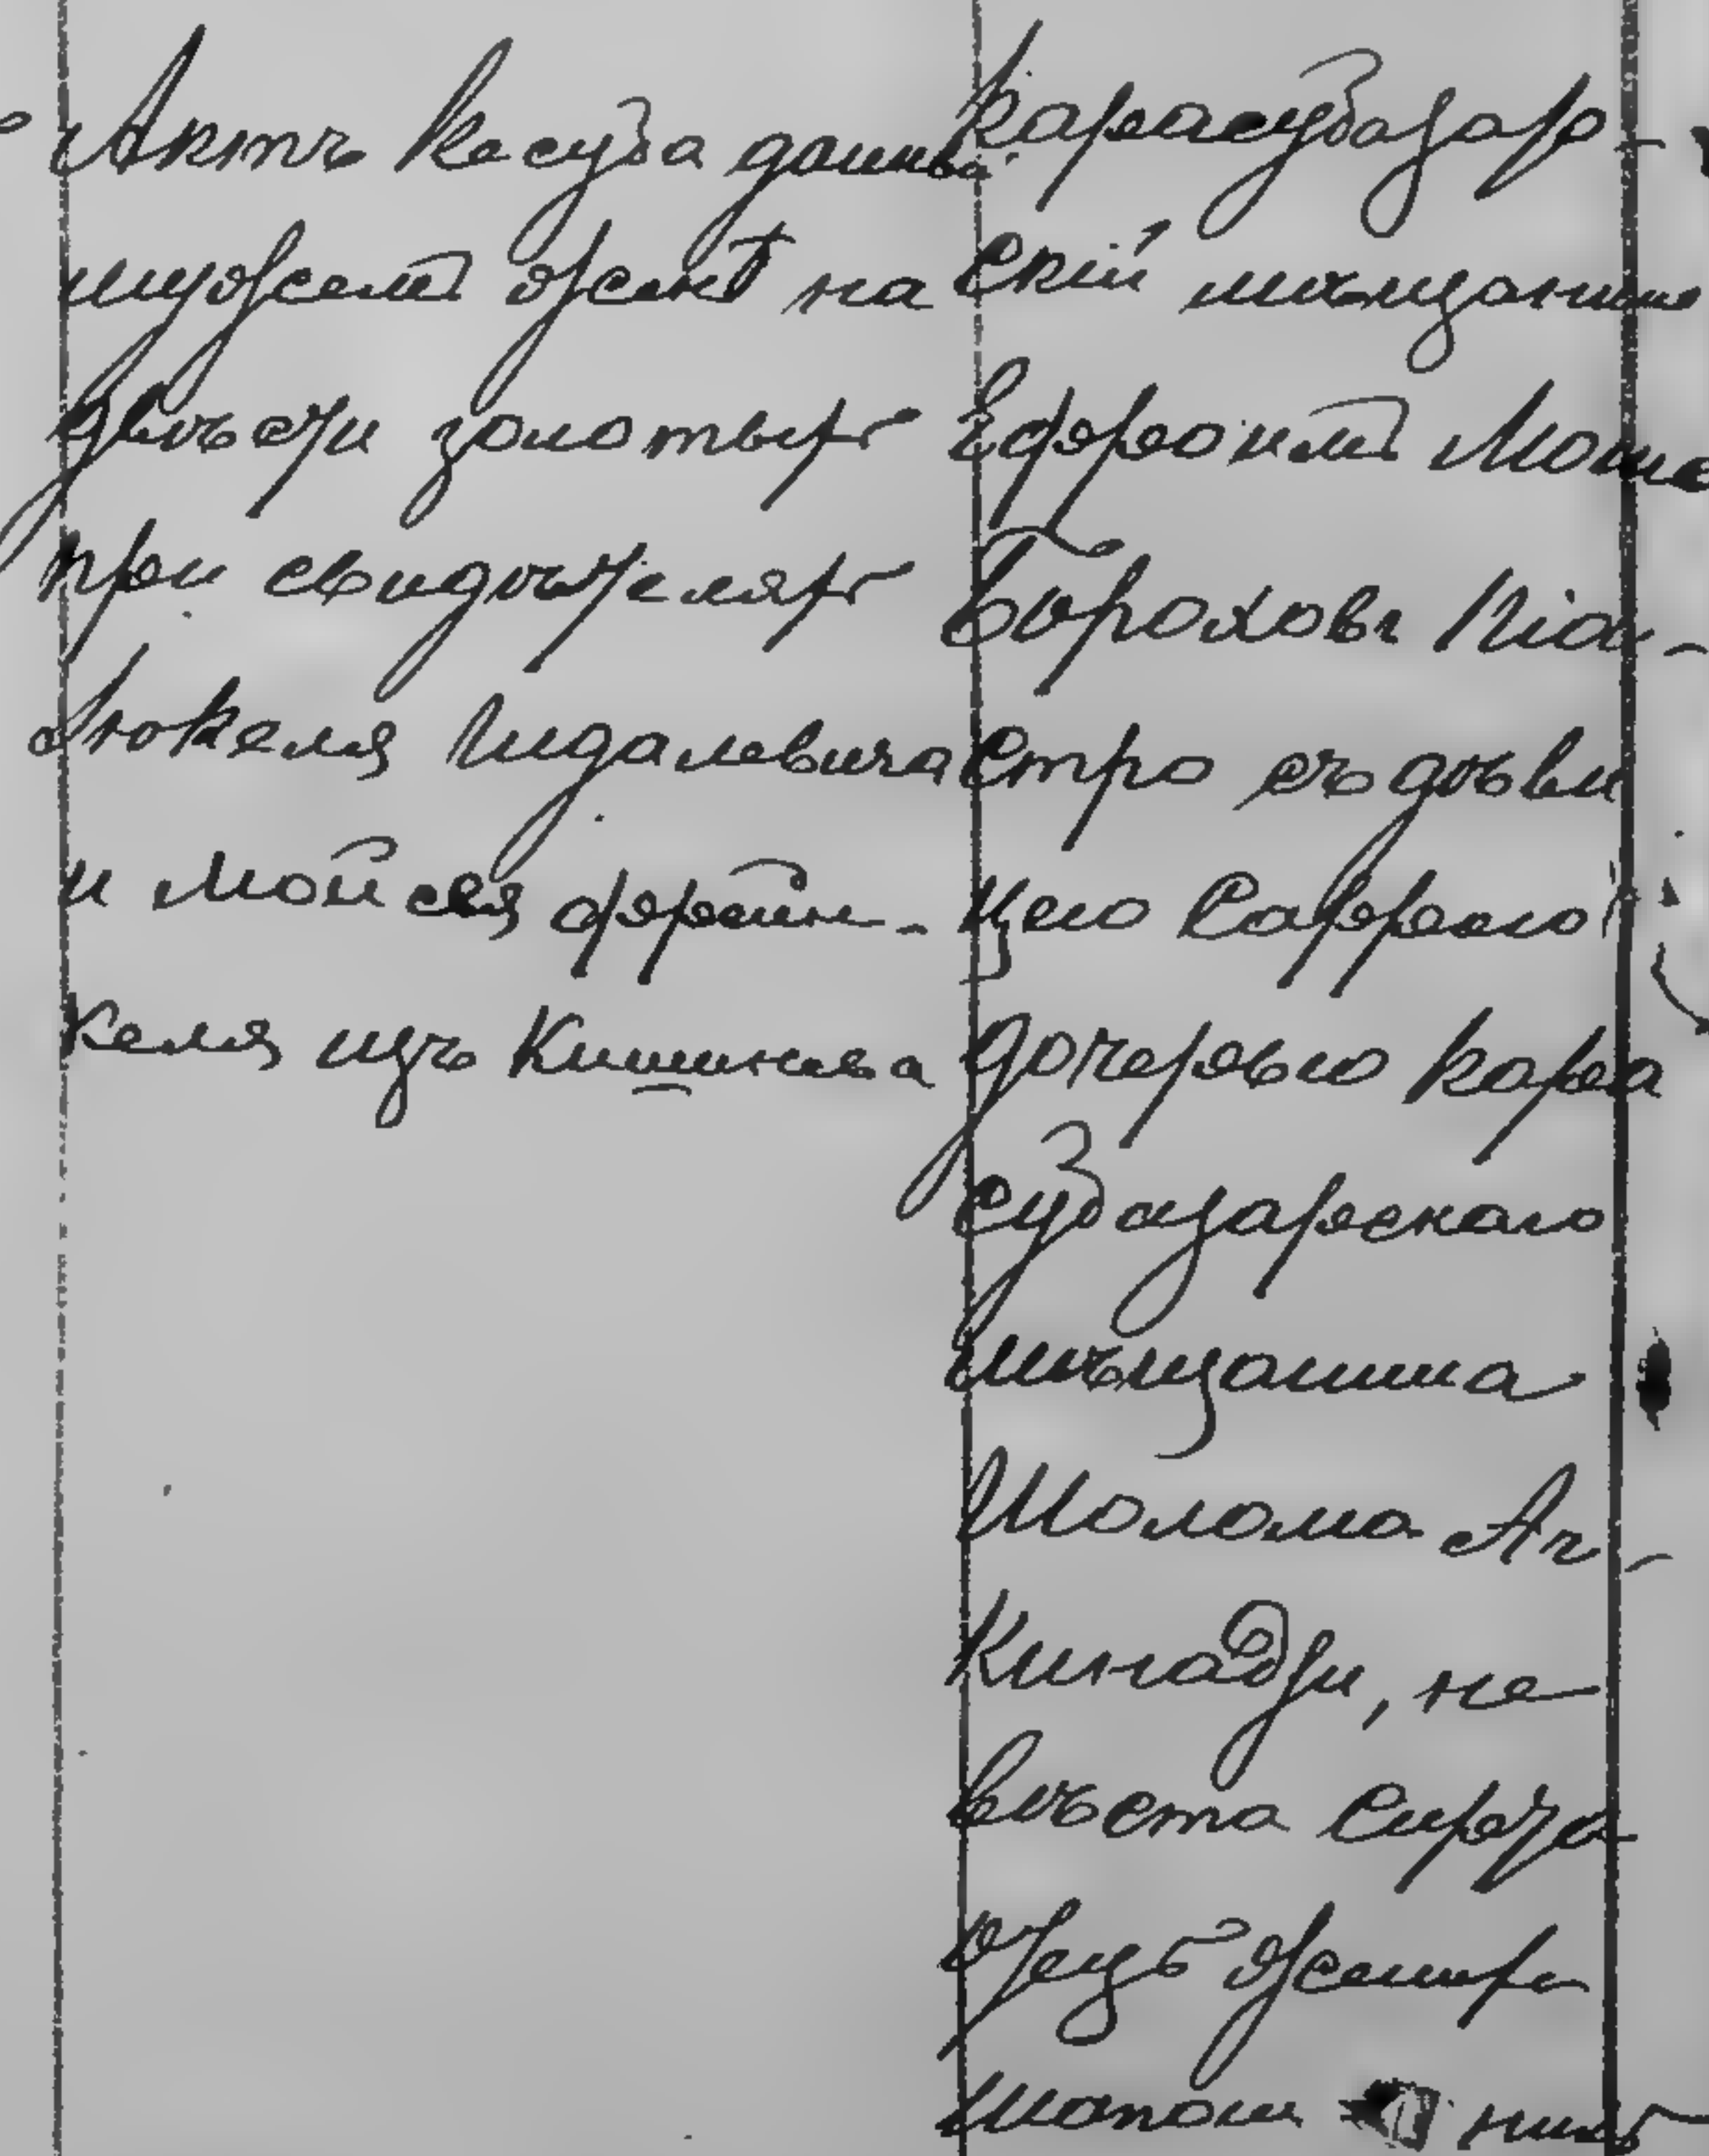 Актъ Кесуба данный
мужемъ женѣ на
двѣсти золотыхъ
при свидѣтеляхъ
Янкеля Шдалевича
и Мойсея Френ-
келя изъ Кишинева
Карасубазар-
скій мѣщанинъ
Ефроимъ Мошe
Бороховъ Піа-
стро съ дѣви
цею Саррою
дочерью Кара
субазарскаго
мѣщанина
Шолома Ач-
Кинадзи, не
вѣста Сирота
Отецъ жениха